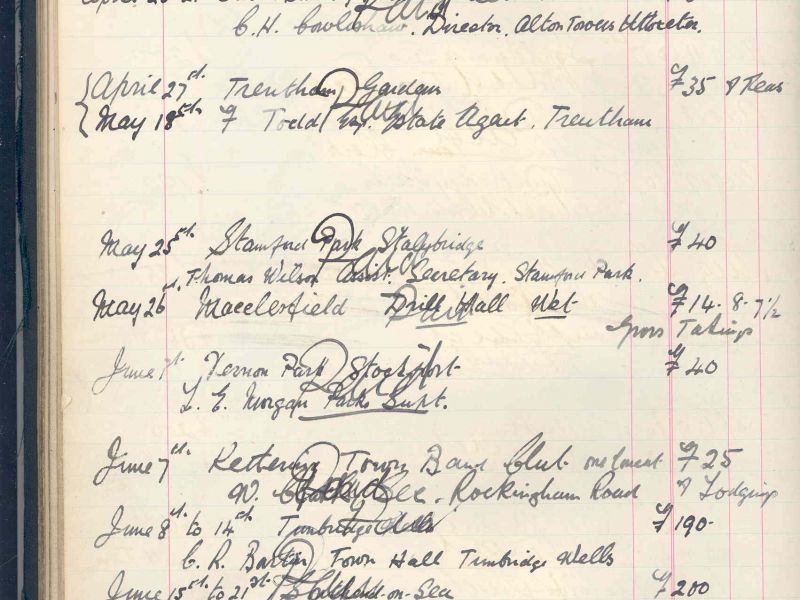 C.H. Cowlishaw. Director. Alton Towers Uttoxeter.
April 27st. Trentham Gardens £35 & Teas
May 18st. F Todd Esq. Estate Agent. Trentham
May 25st. Stamford Park Stalybridge £40
Thomas Wilson Assist. Secretary. Stamford Park.
May 26st. Macclesfield Drill Hall Wet £14-8-7½
Gross Takings
June 1st. Vernon Park Stockport £40
L. E. Morgan Parks Supt.
June 7st. Kettering Town Band Club one concert £25
W. Sec. Rockingham Road & Lodgings
June 8st. to 14st. Tunbridge Wells £190-
C. R. Barter Town Hall Tunbridge Wells
June 15st. to 21st. Southend-on-Sea £200